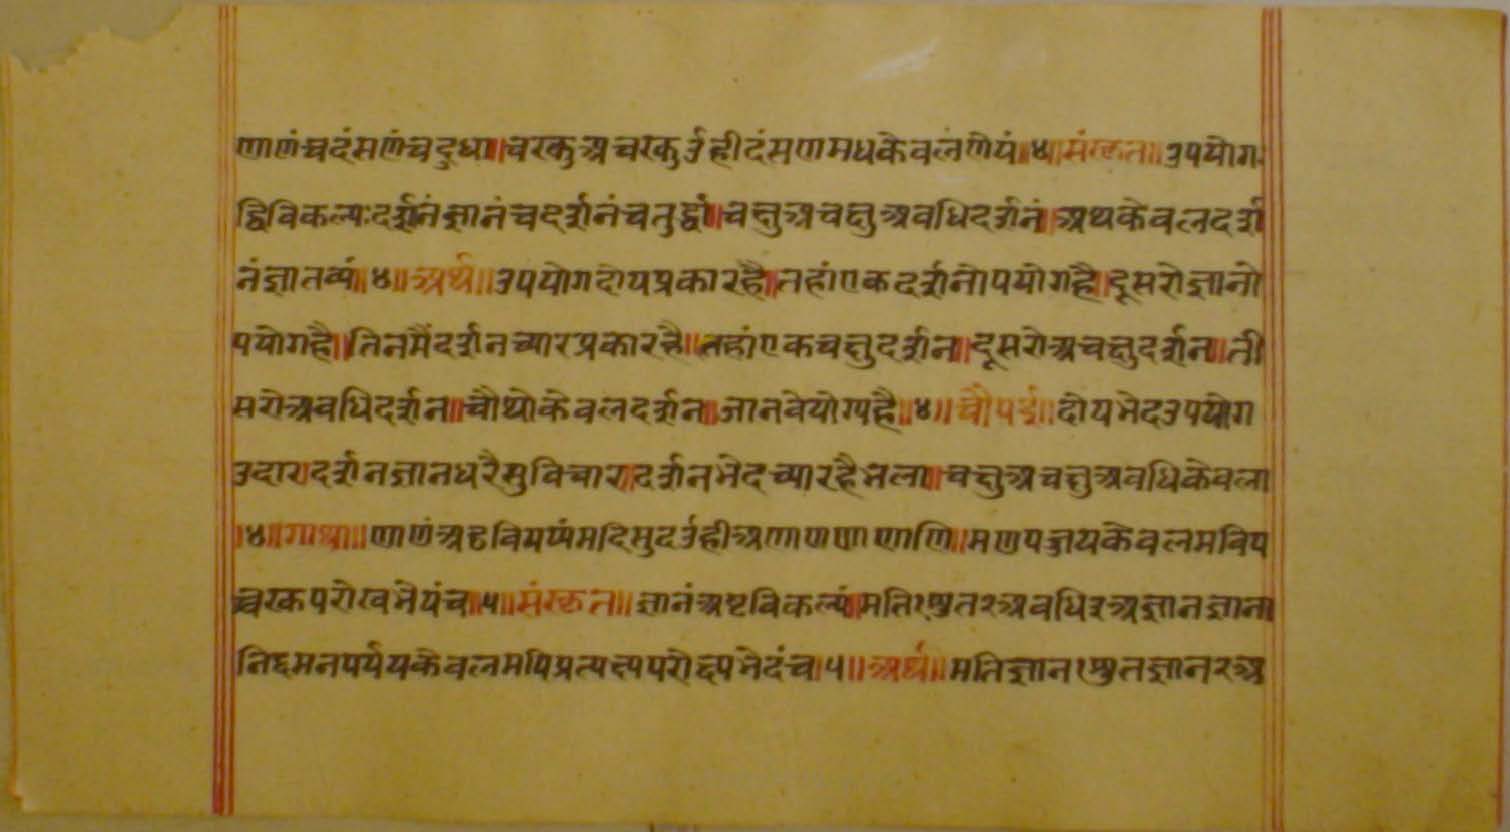 णाणंच्चदंसणंचदुधा॥चरकुअचरकुउंहीदंसणमधकेवलंणेयं॥४॥संस्कृत॥उपयोग
द्विविकल्पःदर्शनंज्ञानंचदर्शनंचतुर्द्धा॥चक्षुअचक्षुअवधिदर्शनं॥अथकेवलदर्श
नंज्ञातव्यं॥४॥अर्थ॥उपयोगदोयप्रकारहै॥तहांएकदर्शनोपयोगहै॥दूसरोज्ञानो
पयोगहै॥तिनमैंदर्शनच्यारप्रकारहै॥तहांएकचक्षुदर्शन॥दूसरोअचक्षुदर्शन॥ती
सरोअवधिदर्शन॥चौथोकेवलदर्शन॥जानवेयोग्यहै॥४॥चौपई॥दोयभेदउपयोग
उदार।दर्शनज्ञानधरैसुविचार।दर्शनभेदच्यारहैभला॥चक्षुअचक्षुअवधिकेवला
।४॥गाथा॥णाणंअट्ठवियप्पंमदिसुदउंहीअणाणणाणाणि॥मणपज्जयकेवलमविप
च्चरकपरोखभेयंच॥५॥संस्कृत॥ज्ञानंअष्टविकल्पं॥मतिश्रुत२अवधि३अज्ञानज्ञाना
निइमनपर्ययकेवलमपिप्रत्यक्ष्यपरोक्ष्यभेदंच।५॥अर्थ॥मतिज्ञानश्रुतज्ञान२अ